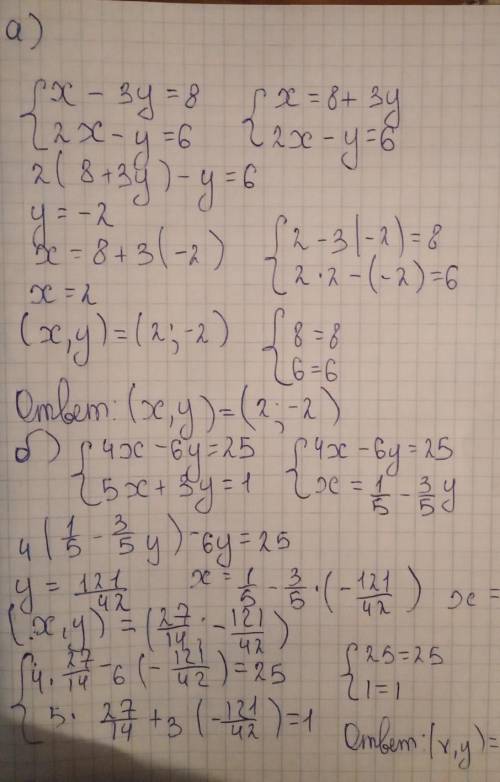 а)
{x - 3y = 8   {x = 8 + 3y
{2x - y = 6   {2x - y = 6
2(8 + 3y) - y = 6
y = -2
x = 8 + 3(-2)   {2 - 3(-2) = 8
x = 2   {2·2 - (-2) = 6
(x, y) = (2; -2)   {8 = 8
{6 = 6
Ответ: (x, y) = (2; -2)
б) {4x - 6y = 25   {4x - 6y = 25
{5x + 3y = 1   {x = 1/5 - 3/5 y
4(1/5 - 3/5 y) - 6y = 25
y = 121/42   x = 1/5 - 3/5 · (-121/42)   x =
(x, y) = (27/14 · -121/42)
{4 · 27/14 - 6(-121/42) = 25   {25 = 25
{5 · 27/14 + 3(-121/42) = 1   {1 = 1
Ответ: (x, y) =